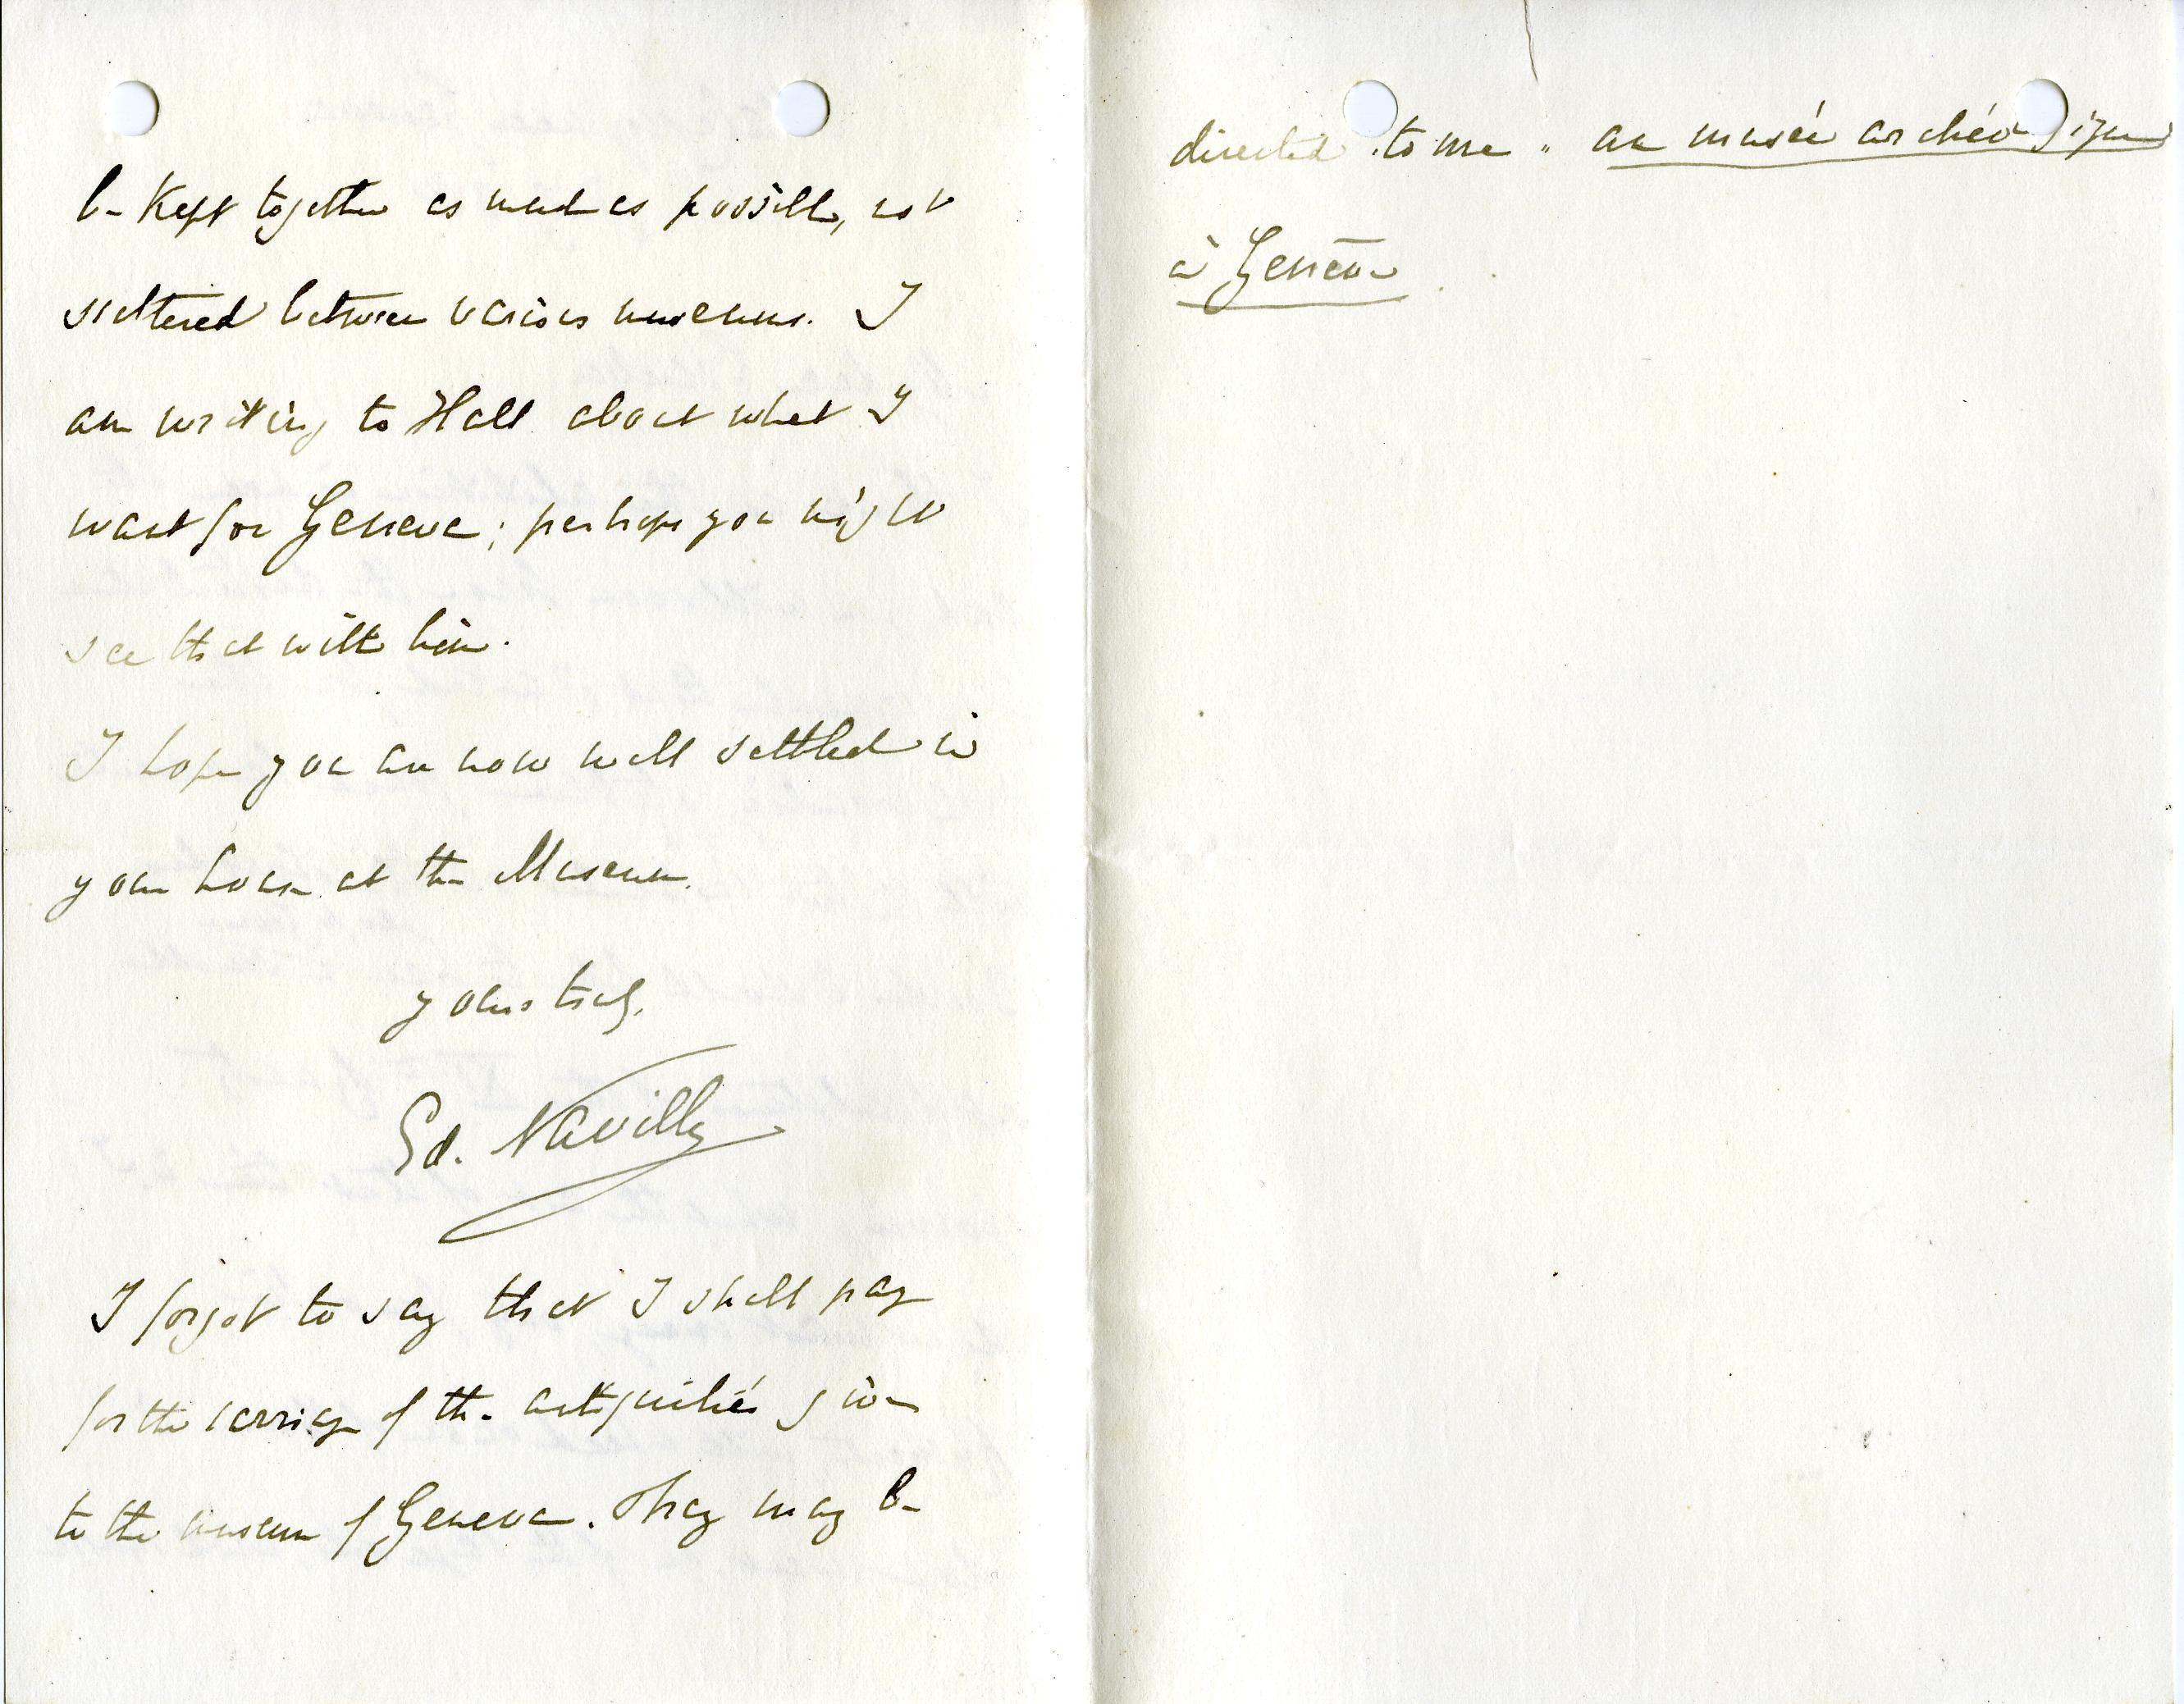 be kept together as much as possible, not
scattered between various museums. I
am writing to Hall about what I
want for Geneva; perhaps you might
see that with him.
I hope you are now well settled in
your house at the Museum.
yours truly,
Ed. Naville
I forgot to say that I shall pay
for the carriage of the antiquities given
to the museum of Geneva. They may be
directed to me " au musée archéologique
à Genève